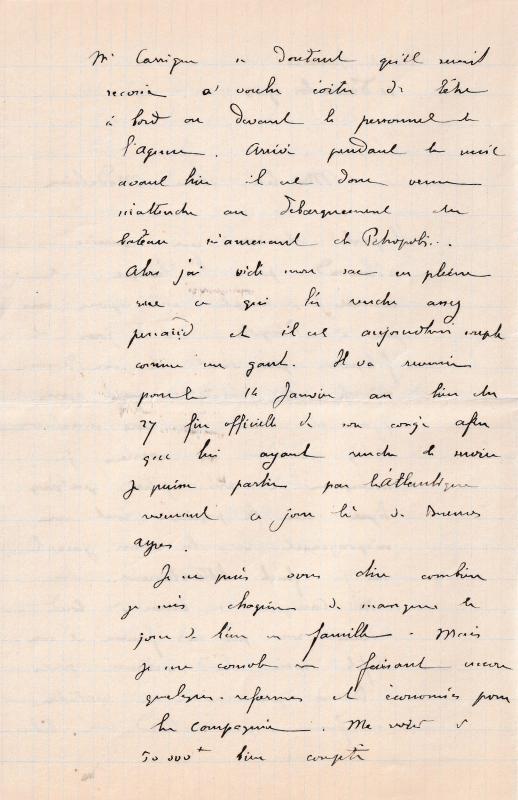 Mr Carrigue se doutant qu'il serait
recevra a voulu éviter de l'être
à bord ou devant le personnel de
l'agence. Arrivé pendant la nuit
avant hier il est donc venu
m'attendre au débarquement du
bateau m'amenant de Petropolis..
Alors j'ai vidé mon sac en pleine
rue ce qui l'a rendu assez
penaud et il est aujourd'hui souple
comme un gant. Il va revenir
pour le 14 Janvier au lieu du
27 fin officielle de son congé afin
que lui ayant rendu le service
je puisse partir par l'Atlantique
revenant ce jour là de Buenos
Ayres.
Je ne puis vous dire combien
je suis chagrin de manquer le
jour de l'an en famille. Mais
je me console en faisant encore
quelques reformes et économies pour
la Compagnie. Me voici à
50 000 bien compté